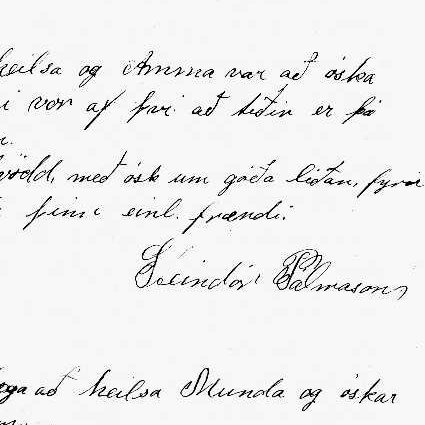 heilsa og Amma var að óska
i vor af þvi að tiðin er þá
kvödd, með ósk um góða liðan, fyrir
þinn einl. frændi.
Steindór Pálmason
að heilsa Munda og óskar